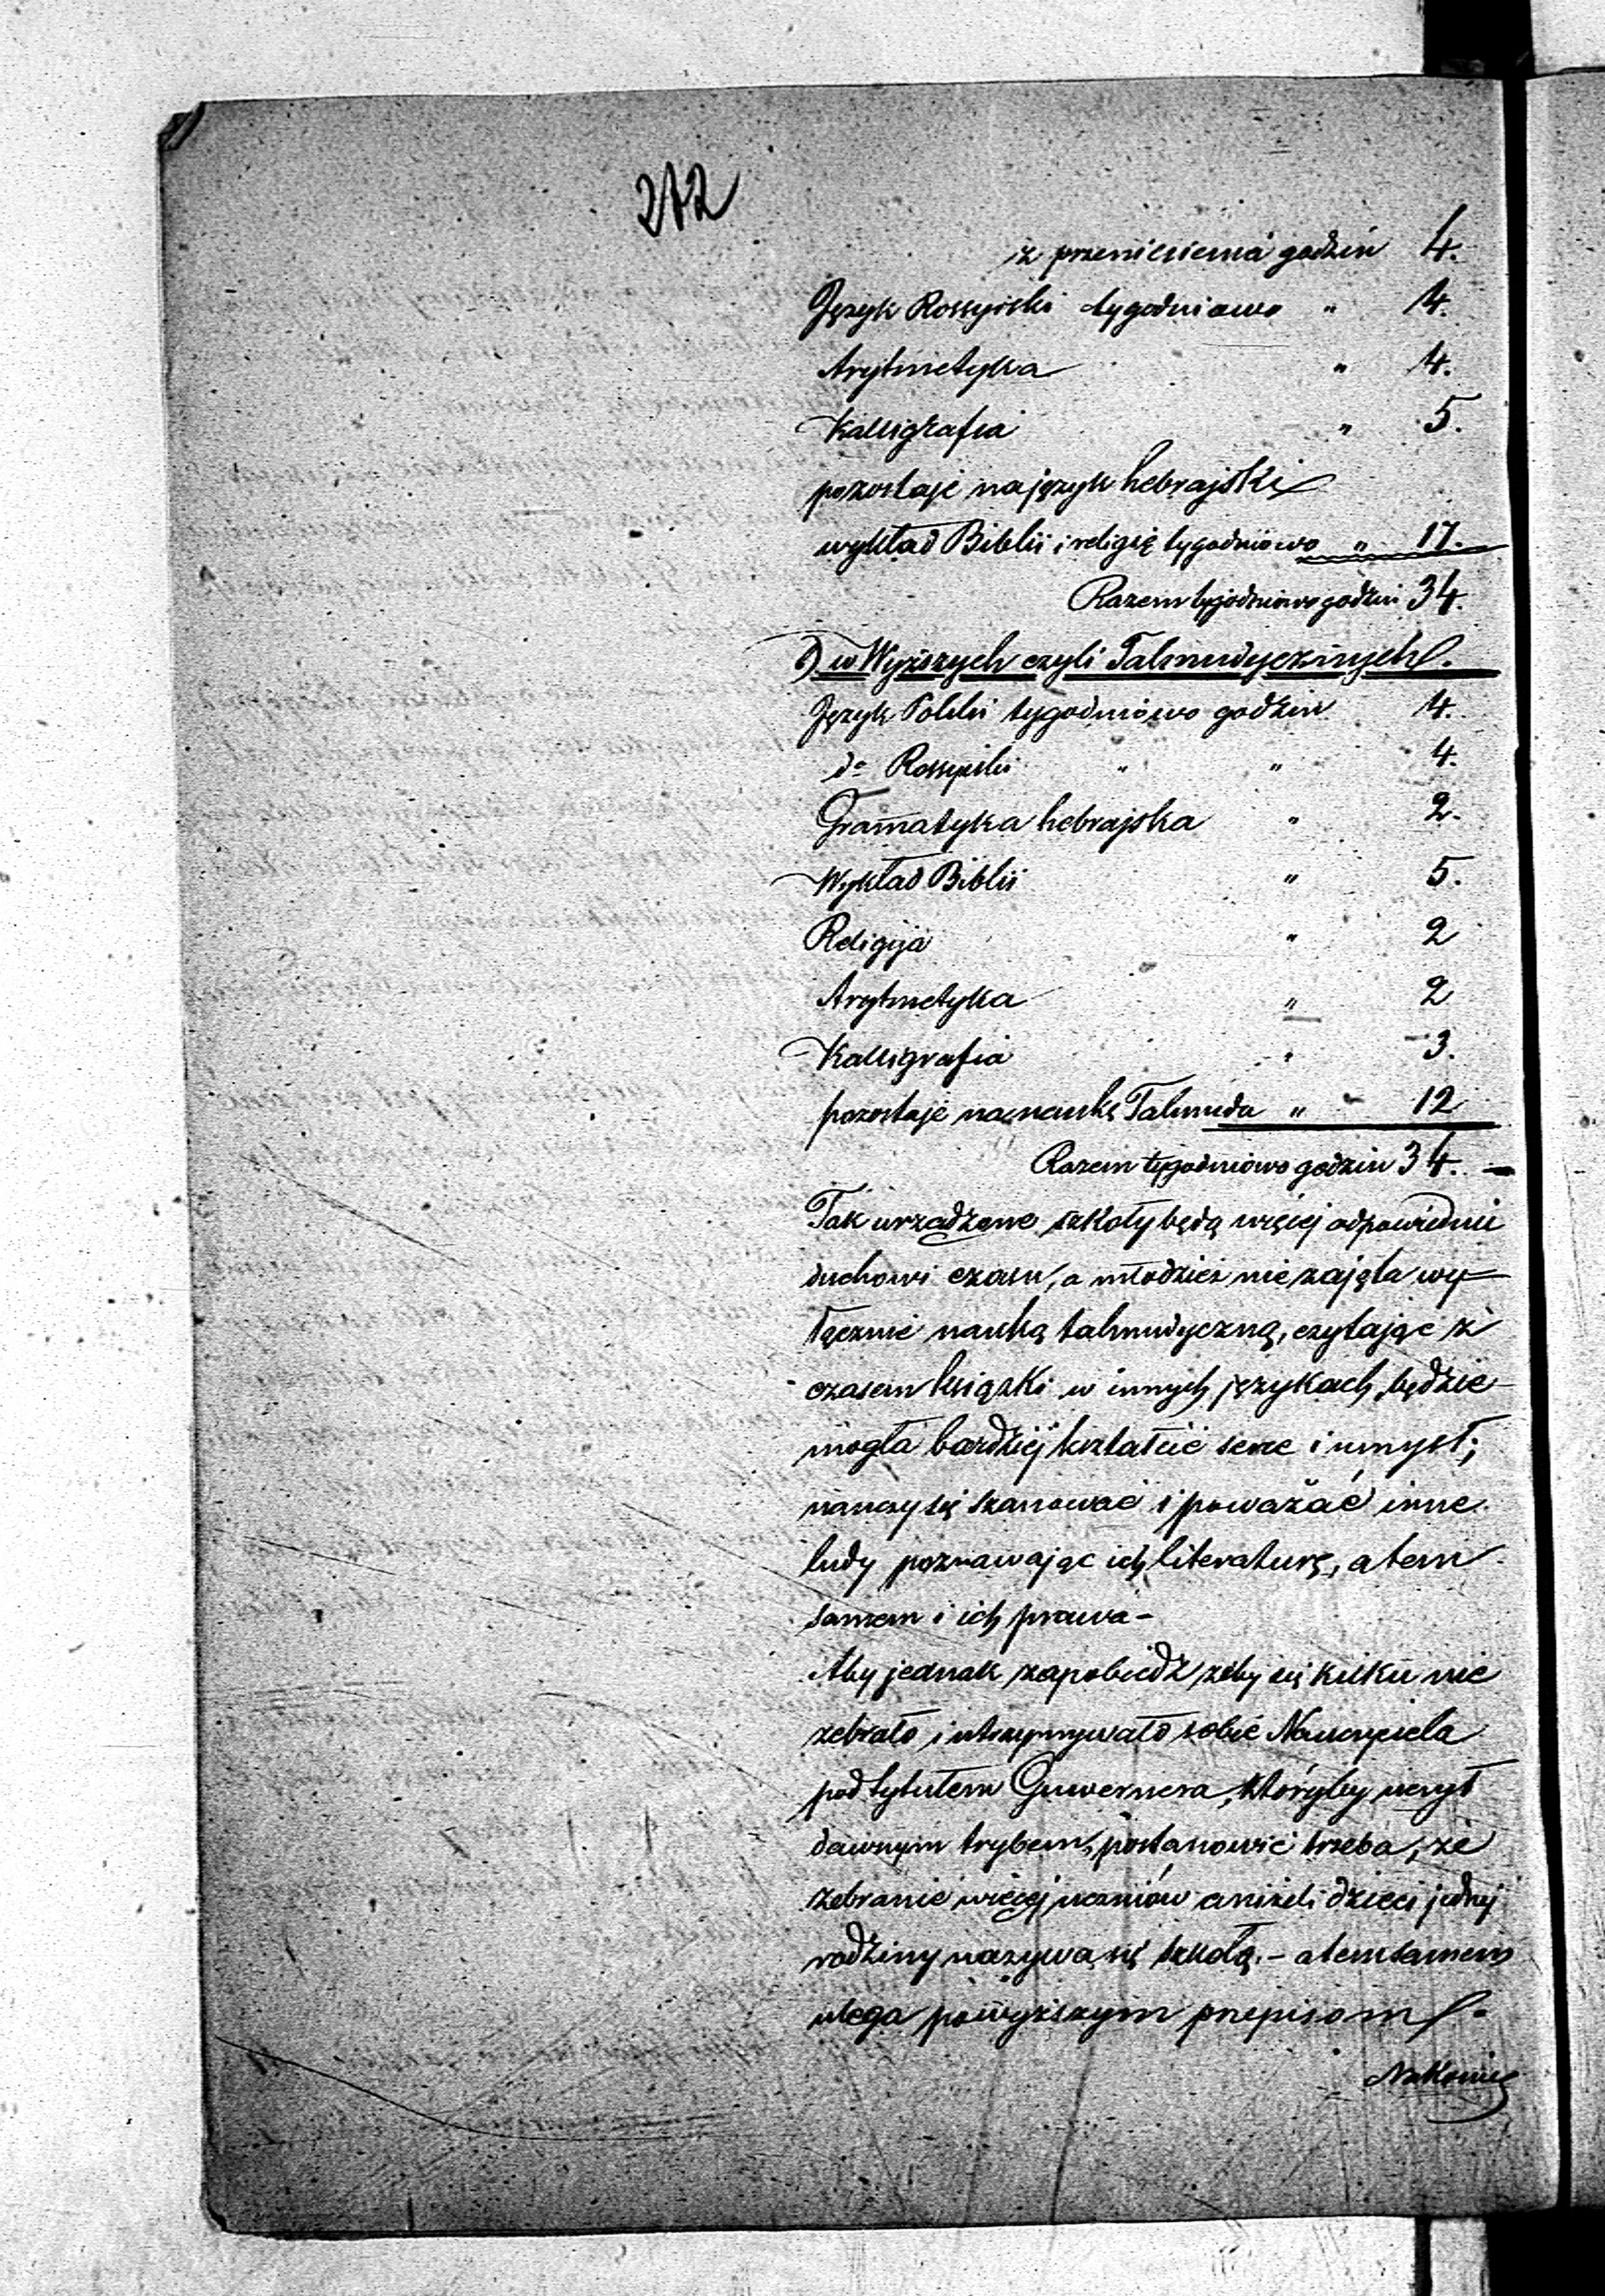 272
z przeniesienia godzin 4.
Język Rossyiski tygodniowo " 4.
Arytmetyka " 4.
Kalligrafia " 5.
pozostaje na język hebrajski
wykład Biblii i religię tygodniowo " 17.
Razem tygodniowo godzin 34.
w Wyższych czyli Talmudycznych.
Język Polski tygodniowo godzin 4.
do Rossyiski " " 4.
Gramatyka hebrajska " 2.
Wykład Biblii " 5.
Religija " 2
Arytmetyka " 2
Kalligrafia " 3.
pozostaje na naukę Talmuda " 12
Razem tygodniowo godzin 34. –
Tak urządzone szkoły będą więcej odpowiednie
duchowi czasu, a młodzież nie zajęta wy=
łącznie nauką talmudyczną, czytając z
czasem książki w innych językach, będzie
mogła bardziej kształcić serce i umysł;
nauczy się szanować i poważać inne
ludy poznawając ich literaturę, a tem
samem i ich prawa –
Aby jednak zapobiedz żeby się kilku nie
zebrało i utrzymywało sobie Nauczyciela
pod tytułem Guwernera, któryby uczył
dawnym trybem, postanowić trzeba, że
zebranie więcej uczniów aniżeli dzieci jednej
rodziny nazywa się szkołą. – a tem samem
ulega powyższym przepisom.
Nakoniec